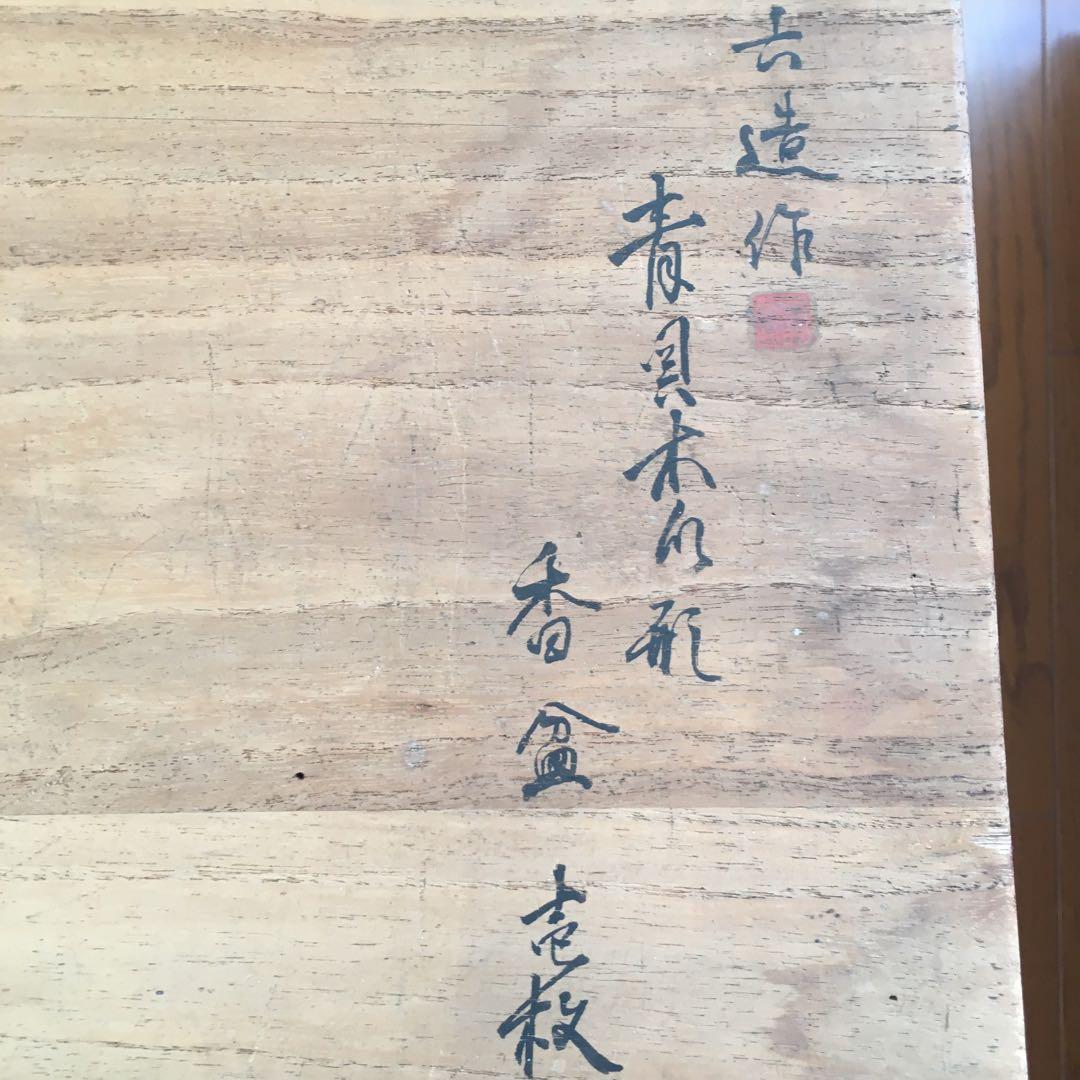 古造作
青貝木瓜形
香盆
壱枚